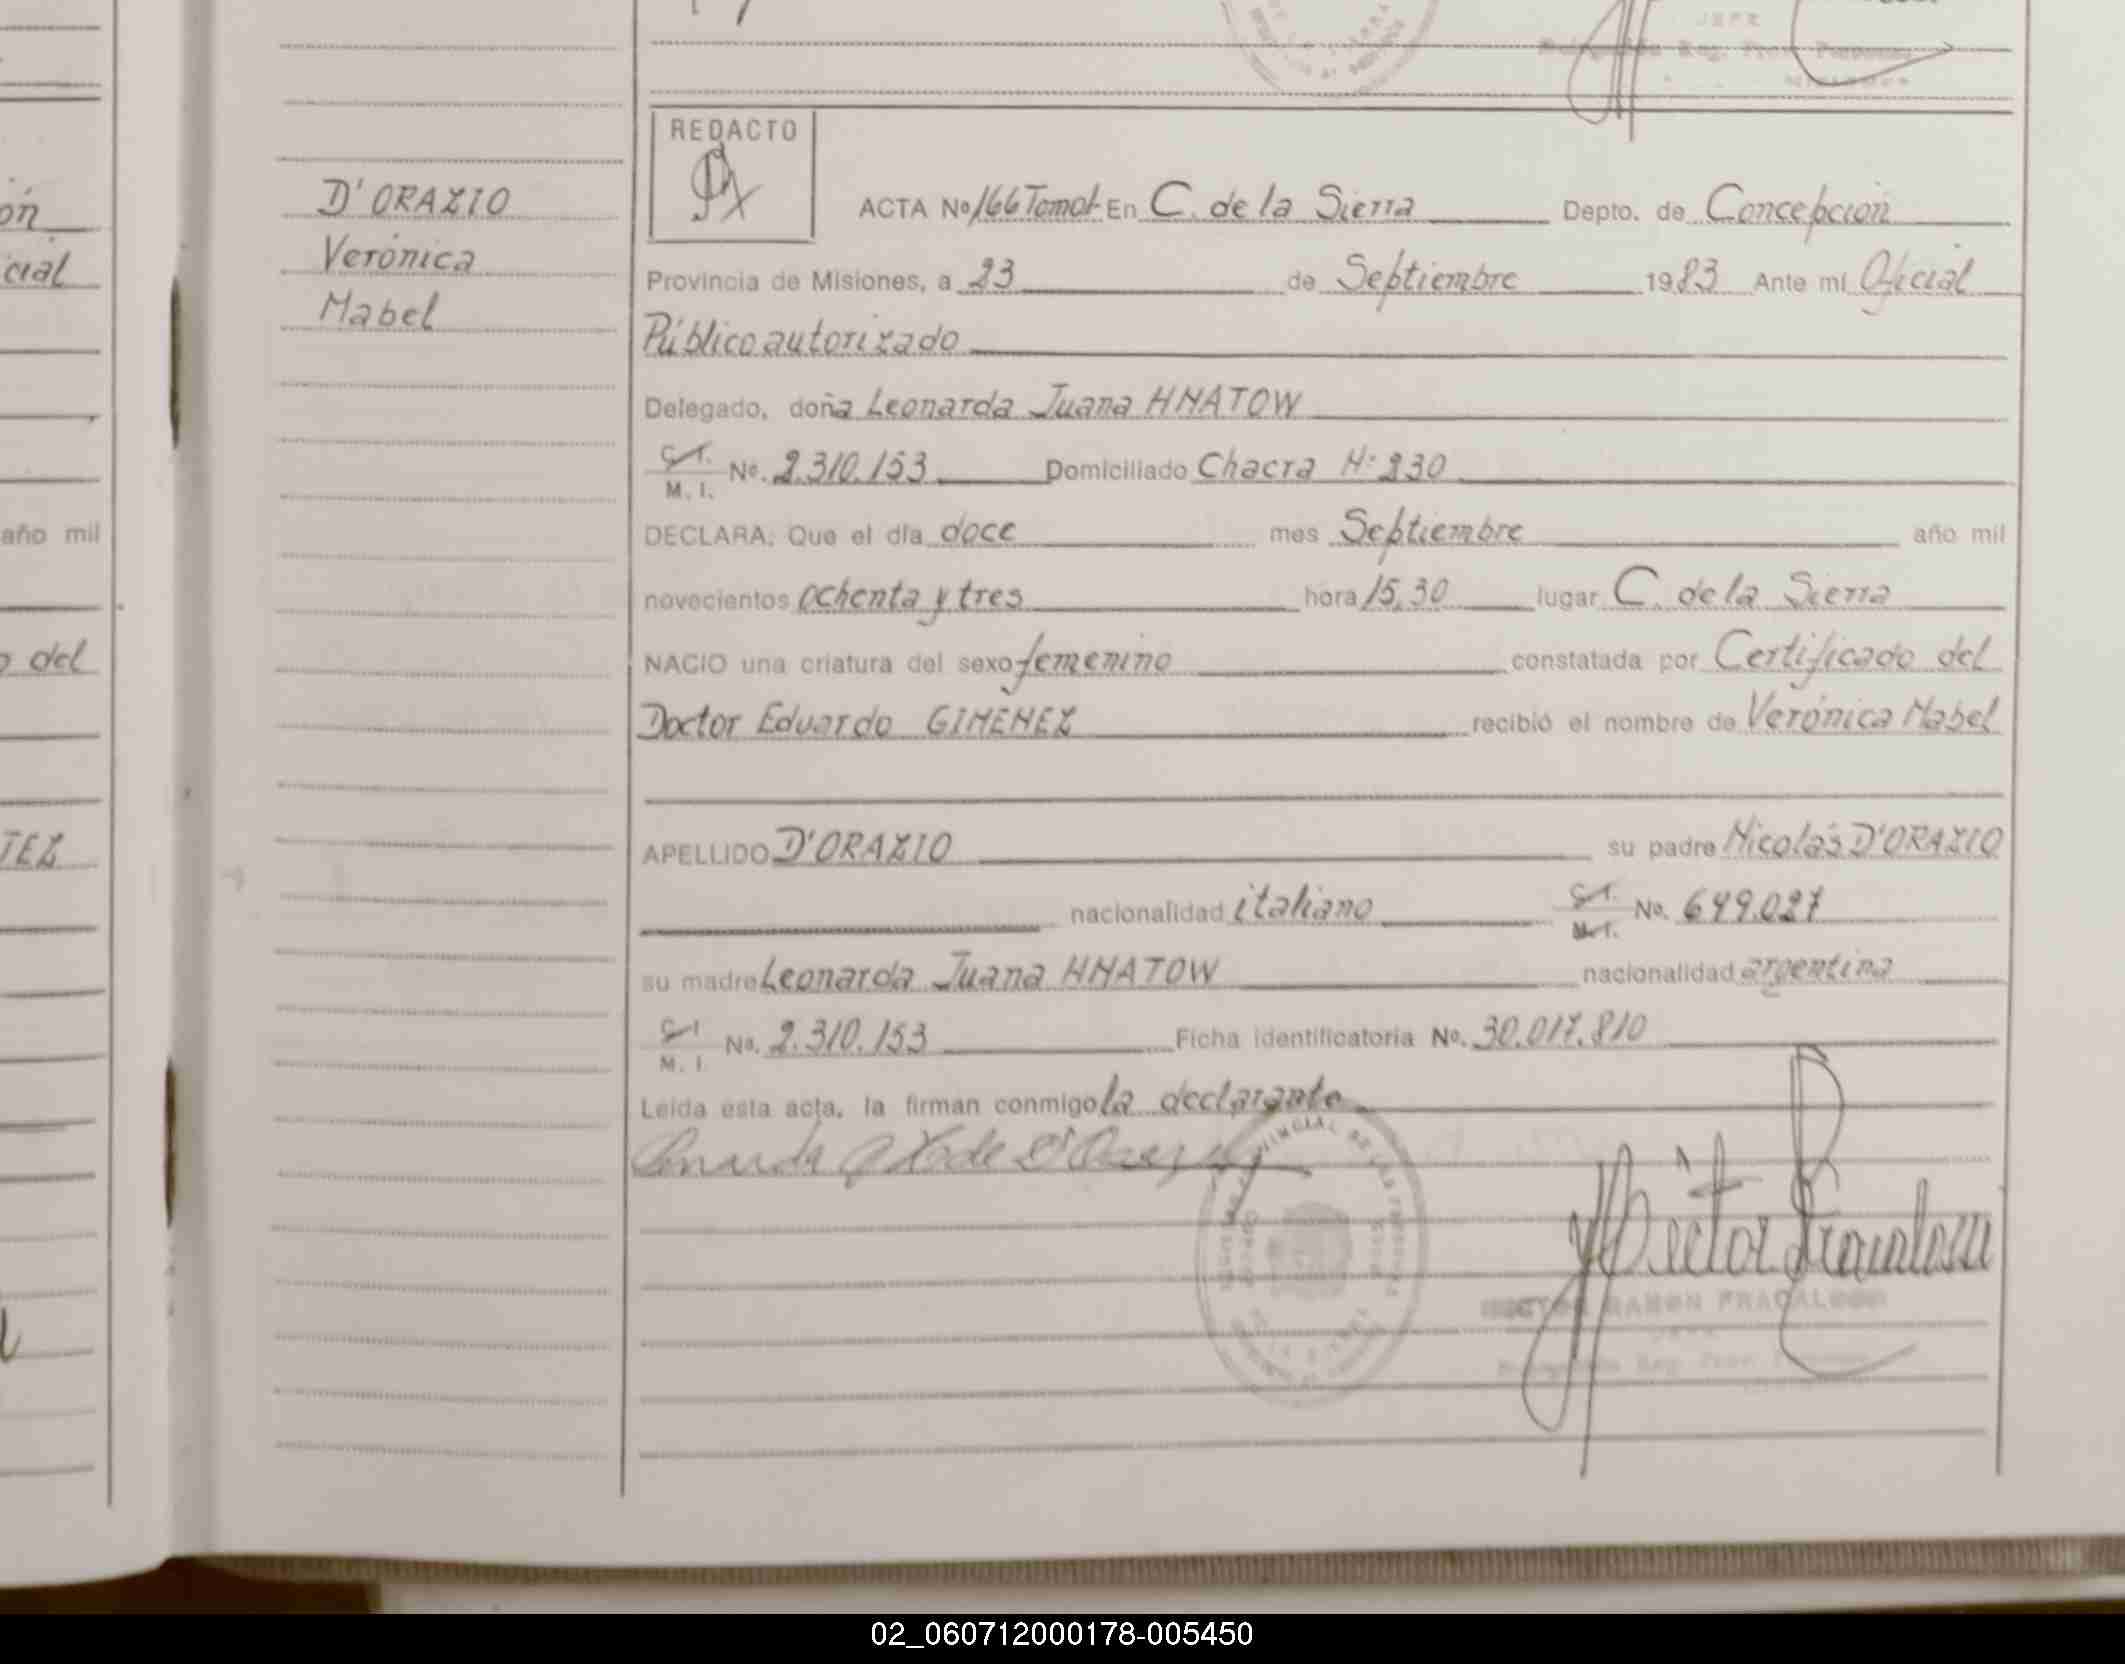 JEFE
REDACTO
ón
cial
año mil
o del
TEZ
D'ORAZIO
Verónica
Mabel
ACTA Nº 166 Tomo I En C. de la Sierra Depto. de Concepción
Provincia de Misiones, a 23 de Septiembre 1983 Ante mí Oficial
Público autorizado
Delegado, doña Leonarda Juana HNATOW
C. I. M. I. Nº. 2.310.153 Domiciliado Chacra Nº 230
DECLARA: Que el día doce mes Septiembre año mil
novecientos ochenta y tres hora 15,30 lugar C. de la Sierra
NACIO una criatura del sexo femenino constatada por Certificado del
Doctor Eduardo GIMENEZ recibió el nombre de Verónica Mabel
APELLIDO D'ORAZIO su padre Nicolás D'ORAZIO
nacionalidad italiano C. I. M. I. Nº. 649.027
su madre Leonarda Juana HNATOW nacionalidad argentina
C. I. M. I. Nº. 2.310.153 Ficha identificatoria Nº. 30.017.810
Leída esta acta, la firman conmigo la declarante
HECTOR RAMON FRACALOSSI
JEFE
02_060712000178-005450